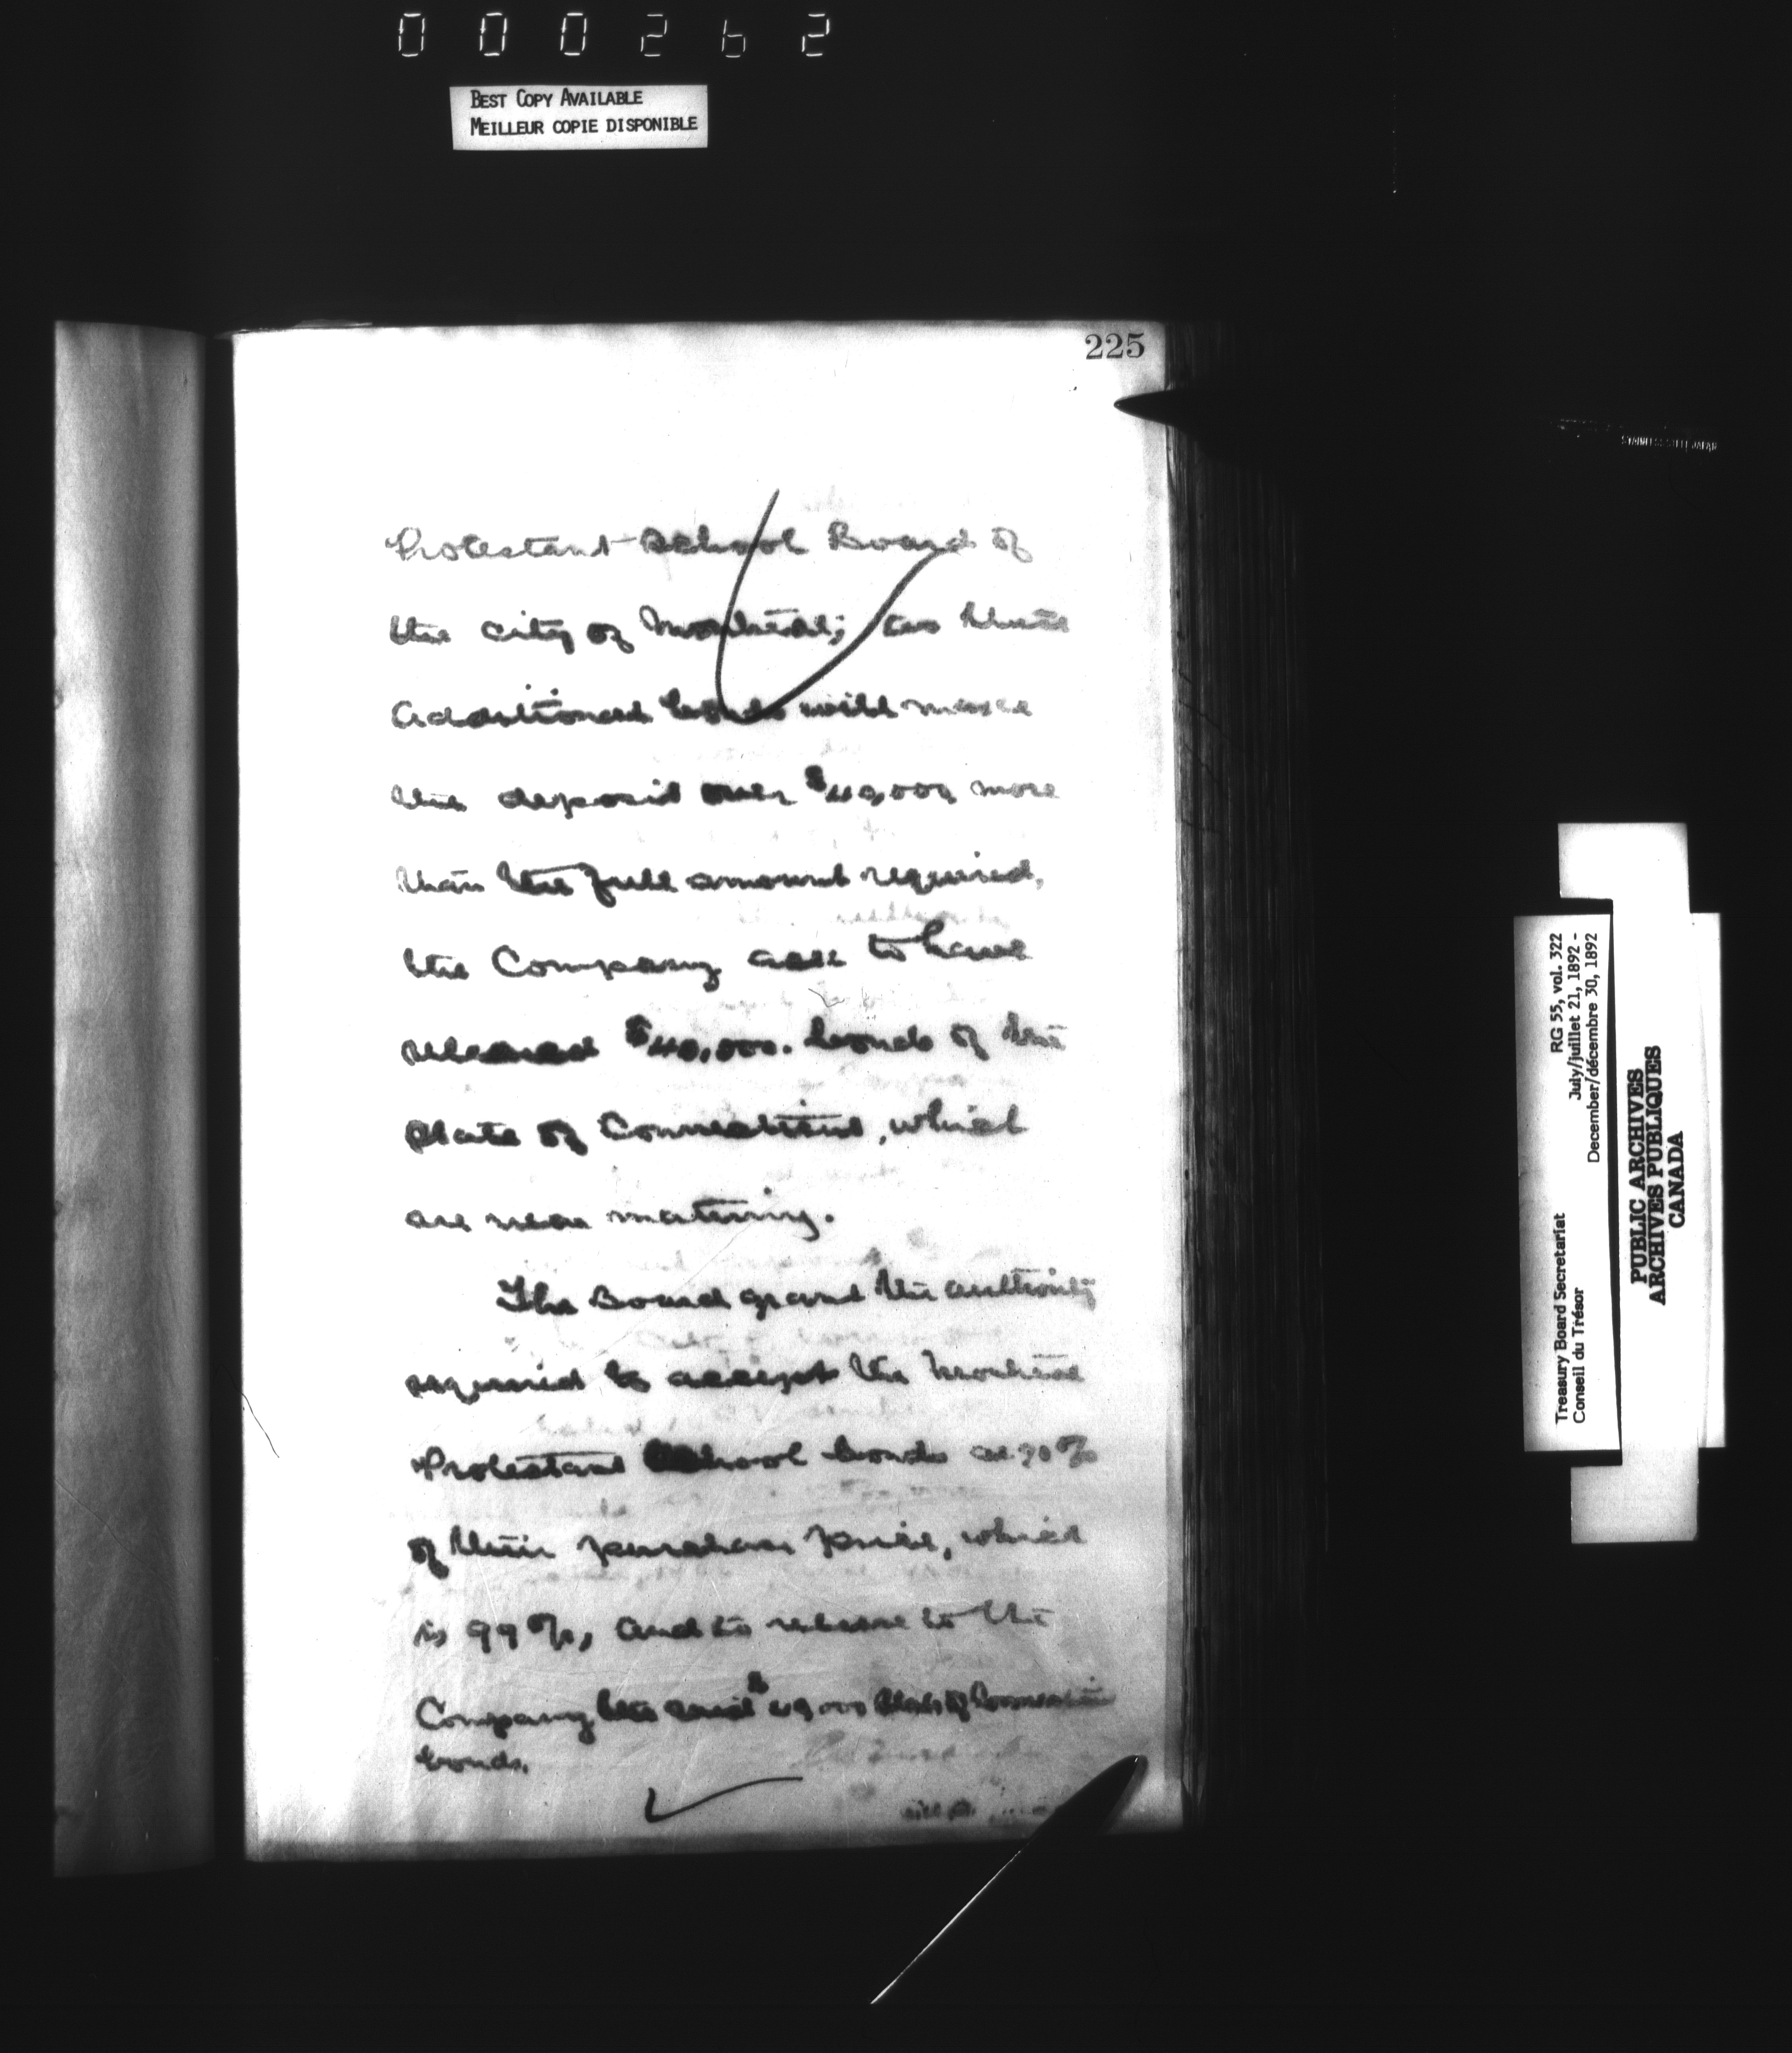 000262
BEST COPY AVAILABLE
MEILLEUR COPIE DISPONIBLE
225
Protestant School Board of
the city of Montreal; as these
additional bonds will make
the deposit over $40,000 more
than the full amount required,
the Company ask to have
released $40,000. bonds of the
State of Connecticut, which
are near maturing.
The Board grant the authority
required to accept the Montreal
Protestant School bonds at 90%
of their purchase price, which
is 99%, and to release to the
Company the said $40,000 State of Connecticut
bonds.
STAINLESS STEEL JAPAN
Treasury Board Secretariat RG 55, vol. 322
Conseil du Trésor July/juillet 21, 1892 -
December/décembre 30, 1892
PUBLIC ARCHIVES
ARCHIVES PUBLIQUES
CANADA